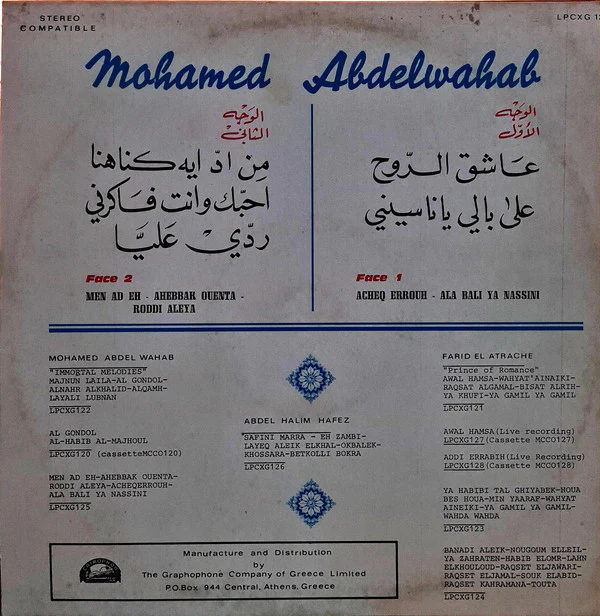 STEREO
COMPATIBLE
LPCXG
Mohamed Abdelwahab
الوجه
الأوّل
عَاشق الرّوح
على بالي يا ناسيني
Face 1
ACHEQ ERROUH - ALA BALI YA NASSINI
الوجه
الثاني
مِن ادّ ايه كناهنا
احبّك وانت فاكرني
ردّي عَليَّا
Face 2
MEN AD EH - AHEBBAK OUENTA -
RODDI ALEYA
MOHAMED ABDEL WAHAB
"IMMORTAL MELODIES"
MAJNUN LAILA-AL GONDOL-
ALNAHR ALKHALID-ALQAMH-
LAYALI LUBNAN
LPCXG122
AL GONDOL
AL-HABIB AL-MAJHOUL
LPCXG120 (cassetteMCCO120)
MEN AD EH-AHEBBAK OUENTA-
RODDI ALEYA-ACHEQERROUH-
ALA BALI YA NASSINI
LPCXG125
ABDEL HALIM HAFEZ
"SAFINI MARRA - EH ZAMBI-
LAYEQ ALEIK ELKHAL-OKBALEK-
KHOSSARA-BETKOLLI BOKRA
LPCXG126
FARID EL ATRACHE
"Prince of Romance"
AWAL HAMSA-WAHYAT'AINAIKI-
RAQSAT ALGAMAL-BISAT ALRIH-
YA KHUFI-YA GAMIL YA GAMIL
LPCXG121
AWAL HAMSA(Live recording)
LPCXG127(Cassette MCCO127)
ADDI ERRABIH(Live Recording)
LPCXG128(Cassette MCCO128)
YA HABIBI TAL GHIYABEK-HOUA
BES HOUA-MIN YAARAF-WAHYAT
AINEIKI-YA GAMIL YA GAMIL-
WAHDA WAHDA
LPCXG123
BANADI ALEIK-NOUGOUM ELLEIL-
YA ZAHRATEN-HABIB ELOMR-LAHN
ELKHOULOUD-RAQSET ELJAWARI-
RAQSET ELJAMAL-SOUK ELABID-
RAQSET KAHRAMANA-TOUTA
LPCXG124
Manufacture and Distribution
by
The Graphophone Company of Greece Limited
P.O.Box 944 Central, Athens, Greece